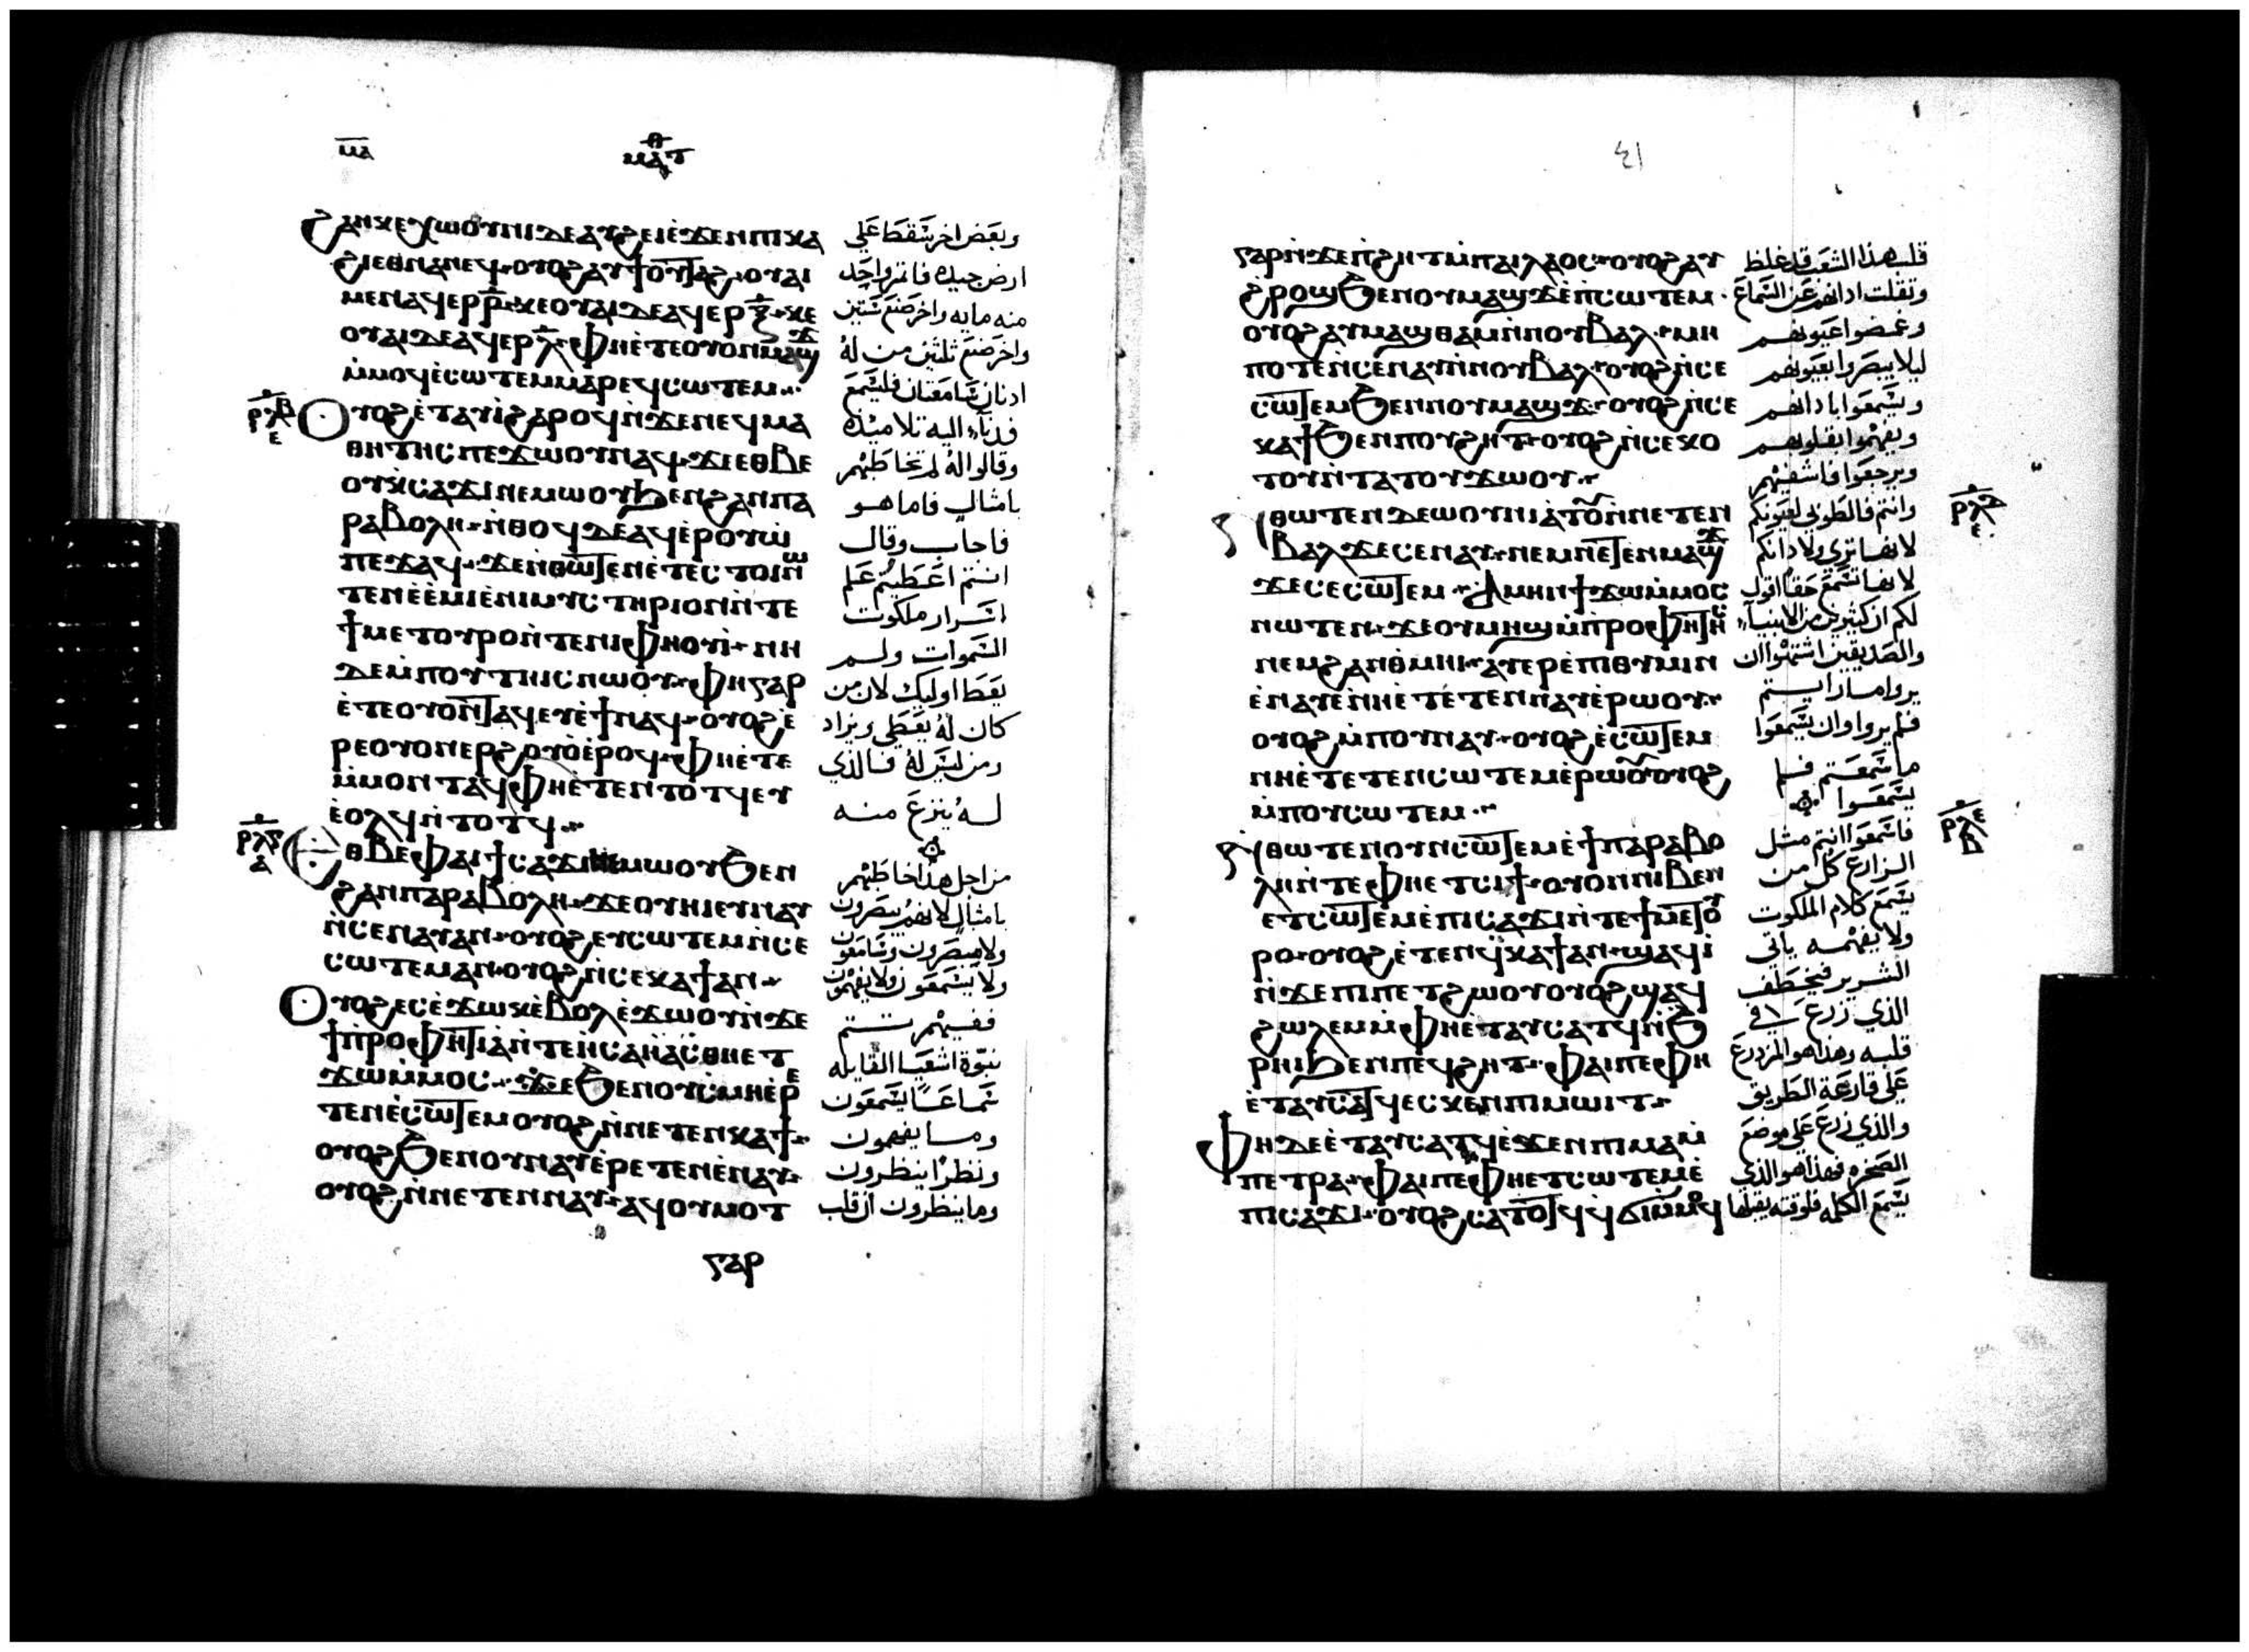 ⲙⲁ
ⲙⲁⲧ
ϩⲁⲛⲕⲉⲭⲱⲟⲩⲛⲓ ⲇⲉ ⲁⲩϩⲉⲓ ⲉϫⲉⲛ ⲡⲓⲕⲁ
ϩⲓ ⲉⲑⲛⲁⲛⲉϥ ⲟⲩⲟϩ ⲁⲩϯⲟⲩⲧⲁϩ ⲟⲩⲁⲓ
ⲙⲉⲛ ⲁϥⲉⲣ ⲣ̅ ⲕⲉⲟⲩⲁⲓ ⲇⲉ ⲁϥⲉⲣ ⲝ̅ ⲕⲉ
ⲟⲩⲁⲓ ⲇⲉ ⲁϥⲉⲣ ⲗ̅ ⲫⲏ ⲉⲧⲉ ⲟⲩⲟⲛ ⲙⲁϣϫ
ⲙ̀ⲙⲟϥ ⲉ̀ⲥⲱⲧⲉⲙ ⲙⲁⲣⲉϥⲥⲱⲧⲉⲙ
ⲟⲩⲟϩ ⲉ̀ⲧⲁⲩⲓ̀ ϩⲁⲣⲟϥ ⲛ̀ϫⲉ ⲛⲉϥⲙⲁ
ⲑⲏⲧⲏⲥ ⲡⲉϫⲱⲟⲩ ⲛⲁϥ ϫⲉ ⲉⲑⲃⲉ
ⲟⲩ ⲕⲥⲁϫⲓ ⲛⲉⲙⲱⲟⲩ ϧⲉⲛ ϩⲁⲛⲡⲁ
ⲣⲁⲃⲟⲗⲏ ⲛ̀ⲑⲟϥ ⲇⲉ ⲁϥⲉ̀ⲣⲟⲩⲱ̀
ⲡⲉϫⲁϥ ϫⲉ ⲛ̀ⲑⲱⲧⲉⲛ ⲉ̀ⲧⲉⲥⲧⲟⲓ ⲛⲱ
ⲧⲉⲛ ⲉ̀ⲉ̀ⲙⲓ ⲉ̀ⲛⲓⲙⲩⲥⲧⲏⲣⲓⲟⲛ ⲛ̀ⲧⲉ
ϯⲙⲉⲧⲟⲩⲣⲟ ⲛ̀ⲧⲉ ⲛⲓⲫⲏⲟⲩⲓ̀ ⲛⲏ
ⲇⲉ ⲙ̀ⲡⲟⲩⲧⲏⲓⲥ ⲛⲱⲟⲩ ⲫⲏ ⲅⲁⲣ
ⲉ̀ⲧⲉ ⲟⲩⲟⲛⲧⲁϥ ⲉⲩⲉ̀ϯ ⲛⲁϥ ⲟⲩⲟϩ ⲉ̀
ⲣⲉ ⲟⲩⲟⲛ ⲉⲣϩⲟⲩⲟ̀ ⲉ̀ⲣⲟϥ ⲫⲏ ⲉ̀ⲧⲉ
ⲙ̀ⲙⲟⲛⲧⲁϥ ⲫⲏ ⲉ̀ⲧⲉⲛⲧⲟⲧϥ ⲉⲩ
ⲉ̀ⲟⲗϥ ⲛ̀ⲧⲟⲧϥ
ⲉⲑⲃⲉ ⲫⲁⲓ ϯⲥⲁϫⲓ ⲛⲉⲙⲱⲟⲩ ϧⲉⲛ
ϩⲁⲛⲡⲁⲣⲁⲃⲟⲗⲏ ϫⲉ ⲟⲩⲏⲓ ⲉⲩⲛⲁⲩ
ⲛ̀ⲥⲉⲛⲁⲩ ⲁⲛ ⲟⲩⲟϩ ⲉⲩⲥⲱⲧⲉⲙ ⲛ̀ⲥⲉ
ⲥⲱⲧⲉⲙ ⲁⲛ ⲟⲩⲟϩ ⲛ̀ⲥⲉⲕⲁϯ ⲁⲛ
ⲟⲩⲟϩ ⲉⲥⲉ̀ϫⲱⲕ ⲉ̀ⲃⲟⲗ ⲉ̀ϫⲱⲟⲩ ⲛ̀ϫⲉ
ϯⲡⲣⲟⲫⲏⲧⲓⲁ ⲛ̀ⲧⲉ ⲏⲥⲁⲏⲁⲥ ⲑⲏⲉⲧ
ϫⲱ ⲙ̀ⲙⲟⲥ ϫⲉ ϧⲉⲛ ⲟⲩⲥⲙⲏ ⲉ̀ⲣⲉ
ⲧⲉⲛⲉ̀ⲥⲱⲧⲉⲙ ⲟⲩⲟϩ ⲛ̀ⲛⲉⲧⲉⲛⲕⲁϯ
ⲟⲩⲟϩ ϧⲉⲛ ⲟⲩⲛⲁⲩ ⲉ̀ⲣⲉⲧⲉⲛⲉ̀ⲛⲁⲩ
ⲟⲩⲟϩ ⲛ̀ⲛⲉⲧⲉⲛⲛⲁⲩ ⲁϥⲟⲩⲙⲟⲧ
ⲅⲁⲣ
ⲣⲗⲃ ⲉ
ⲣⲗⲅ ⲁ
وبعض اخر سقط علي
ارض جيده فاثمر واحد
منه مايه واخر صنع ستين
واخر صنع ثلثين من له
ادنان سامعتان فليسمع
فدنا اليه تلاميذه
وقالوا له لم تخاطبهم
بامثال فاما هو
فاجاب وقال
انتم اعطيتم علم
اسرار ملكوت
السموات ولم
يعط اوليك لان من
كان له يعطي ويزاد
ومن ليس له فالذي
له ينزع منه
من اجل هذا اخاطبهم
بامثال لانهم يبصرون
ولا يبصرون وسامعون
ولا يسمعون ولا يفهمون
ففيهم تتم
نبوة اشعيا القايله
سماعًا يسمعون
وما يفهمون
ونظرًا ينظرون
وما ينظرون ان قلب
٤١
ⲅⲁⲣ ⲛ̀ϫⲉ ⲡ̀ϩⲏⲧ ⲙ̀ⲡⲁⲓⲗⲁⲟⲥ ⲟⲩⲟϩ ⲁⲩ
ϩ̀ⲣⲟϣ ϧⲉⲛ ⲟⲩⲙⲁϣϫ ⲉ̀ⲡⲥⲱⲧⲉⲙ
ⲟⲩⲟϩ ⲁⲩⲙⲁϣⲑⲁⲙ ⲛ̀ⲛⲟⲩⲃⲁⲗ ⲙⲏ
ⲡⲟⲧⲉ ⲛ̀ⲥⲉⲛⲁⲩ ⲛ̀ⲛⲟⲩⲃⲁⲗ ⲟⲩⲟϩ ⲛ̀ⲥⲉ
ⲥⲱⲧⲉⲙ ϧⲉⲛ ⲛⲟⲩⲙⲁϣϫ ⲟⲩⲟϩ ⲛ̀ⲥⲉ
ⲕⲁϯ ϧⲉⲛ ⲡⲟⲩϩⲏⲧ ⲟⲩⲟϩ ⲛ̀ⲥⲉⲕⲟ
ⲧⲟⲩ ⲛ̀ⲧⲁⲧⲟⲩϫⲱⲟⲩ
ⲛ̀ⲑⲱⲧⲉⲛ ⲇⲉ ⲱⲟⲩⲛⲓⲁ̀ⲧⲟⲩ ⲛ̀ⲛⲉⲧⲉⲛ
ⲃⲁⲗ ϫⲉ ⲥⲉⲛⲁⲩ ⲛⲉⲙ ⲛⲉⲧⲉⲛⲙⲁϣϫ
ϫⲉ ⲥⲉⲥⲱⲧⲉⲙ ⲁⲙⲏⲛ ϯϫⲱ ⲙ̀ⲙⲟⲥ
ⲛⲱⲧⲉⲛ ϫⲉ ⲟⲩⲙⲏϣ ⲙ̀ⲡⲣⲟⲫⲏⲧⲏⲥ
ⲛⲉⲙ ϩⲁⲛⲑ̀ⲙⲏⲓ ⲁⲩⲉⲣⲉ̀ⲡⲓⲑⲩⲙⲓⲛ
ⲉ̀ⲛⲁⲩ ⲉ̀ⲛⲏ ⲉ̀ⲧⲉⲧⲉⲛⲛⲁⲩ ⲉ̀ⲣⲱⲟⲩ
ⲟⲩⲟϩ ⲙ̀ⲡⲟⲩⲛⲁⲩ ⲟⲩⲟϩ ⲉ̀ⲥⲱⲧⲉⲙ
ⲛⲏ ⲉ̀ⲧⲉⲧⲉⲛⲥⲱⲧⲉⲙ ⲉ̀ⲣⲱⲟⲩ ⲟⲩⲟϩ
ⲙ̀ⲡⲟⲩⲥⲱⲧⲉⲙ
ⲛ̀ⲑⲱⲧⲉⲛ ⲟⲩⲛ ⲥⲱⲧⲉⲙ ⲉ̀ϯⲡⲁⲣⲁⲃⲟ
ⲗⲏ ⲛ̀ⲧⲉ ⲫⲏ ⲉⲧⲥⲓϯ ⲟⲩⲟⲛ ⲛⲓⲃⲉⲛ
ⲉⲧⲥⲱⲧⲉⲙ ⲉ̀ⲡⲓⲥⲁϫⲓ ⲛ̀ⲧⲉ ϯⲙⲉⲧⲟⲩ
ⲣⲟ ⲟⲩⲟϩ ⲉ̀ⲧⲉⲛϥ̀ⲕⲁϯ ⲁⲛ ϣⲁϥⲓ̀
ⲛ̀ϫⲉ ⲡⲓⲡⲉⲧϩⲱⲟⲩ ⲟⲩⲟϩ ϣⲁϥ
ϩⲱⲗⲉⲙ ⲙ̀ⲫⲏ ⲉⲧⲁⲩⲥⲁⲧϥ ⲛ̀ϧ
ⲣⲏⲓ ϧⲉⲛ ⲡⲉϥϩⲏⲧ ⲫⲁⲓ ⲡⲉ ⲫⲏ
ⲉ̀ⲧⲁⲩⲥⲁⲧϥ ⲉⲥⲕⲉⲛ ⲡⲓⲙⲱⲓⲧ
ⲫⲏ ⲇⲉ ⲉ̀ⲧⲁⲩⲥⲁⲧϥ ⲉ̀ϫⲉⲛ ⲡⲓⲙⲁ ⲙ̀
ⲡⲉⲧⲣⲁ ⲫⲁⲓ ⲡⲉ ⲫⲏ ⲉⲧⲥⲱⲧⲉⲙ ⲉ̀
ⲡⲓⲥⲁϫⲓ ⲟⲩⲟϩ ⲥⲁⲧⲟⲧϥ ϥϭⲓ ⲙ̀ⲙⲟϥ
قلب هذا الشعب قد غلظ
وثقلت ادانهم عن السماع
وغمضوا عيونهم
ليلا يبصروا بعيونهم
ويسمعوا بادانهم
ويفهموا بقلوبهم
ويرجعوا فاشفيهم
وانتم فالطوبى لعيونكم
لانها ترى ولادانكم
لانها تسمع حقا اقول
لكم ان كثيرين من الانبياء
والصديقين اشتهوا ان
يروا ما رايتم
فلم يروا وان يسمعوا
ما سمعتم فلم
يسمعوا
فاسمعوا انتم مثل
الزارع كل من
يسمع كلام الملكوت
ولا يفهمه ياتي
الشرير فيخطف
الذي زرع في
قلبه وهذا هو المزروع
على قارعة الطريق
والذي زرع على موضع
الصخره فهذا هو الذي
يسمع الكلمه فلوقته يقبلها
ⲣⲗⲇ ⲉ
ⲣⲗⲉ ⲃ